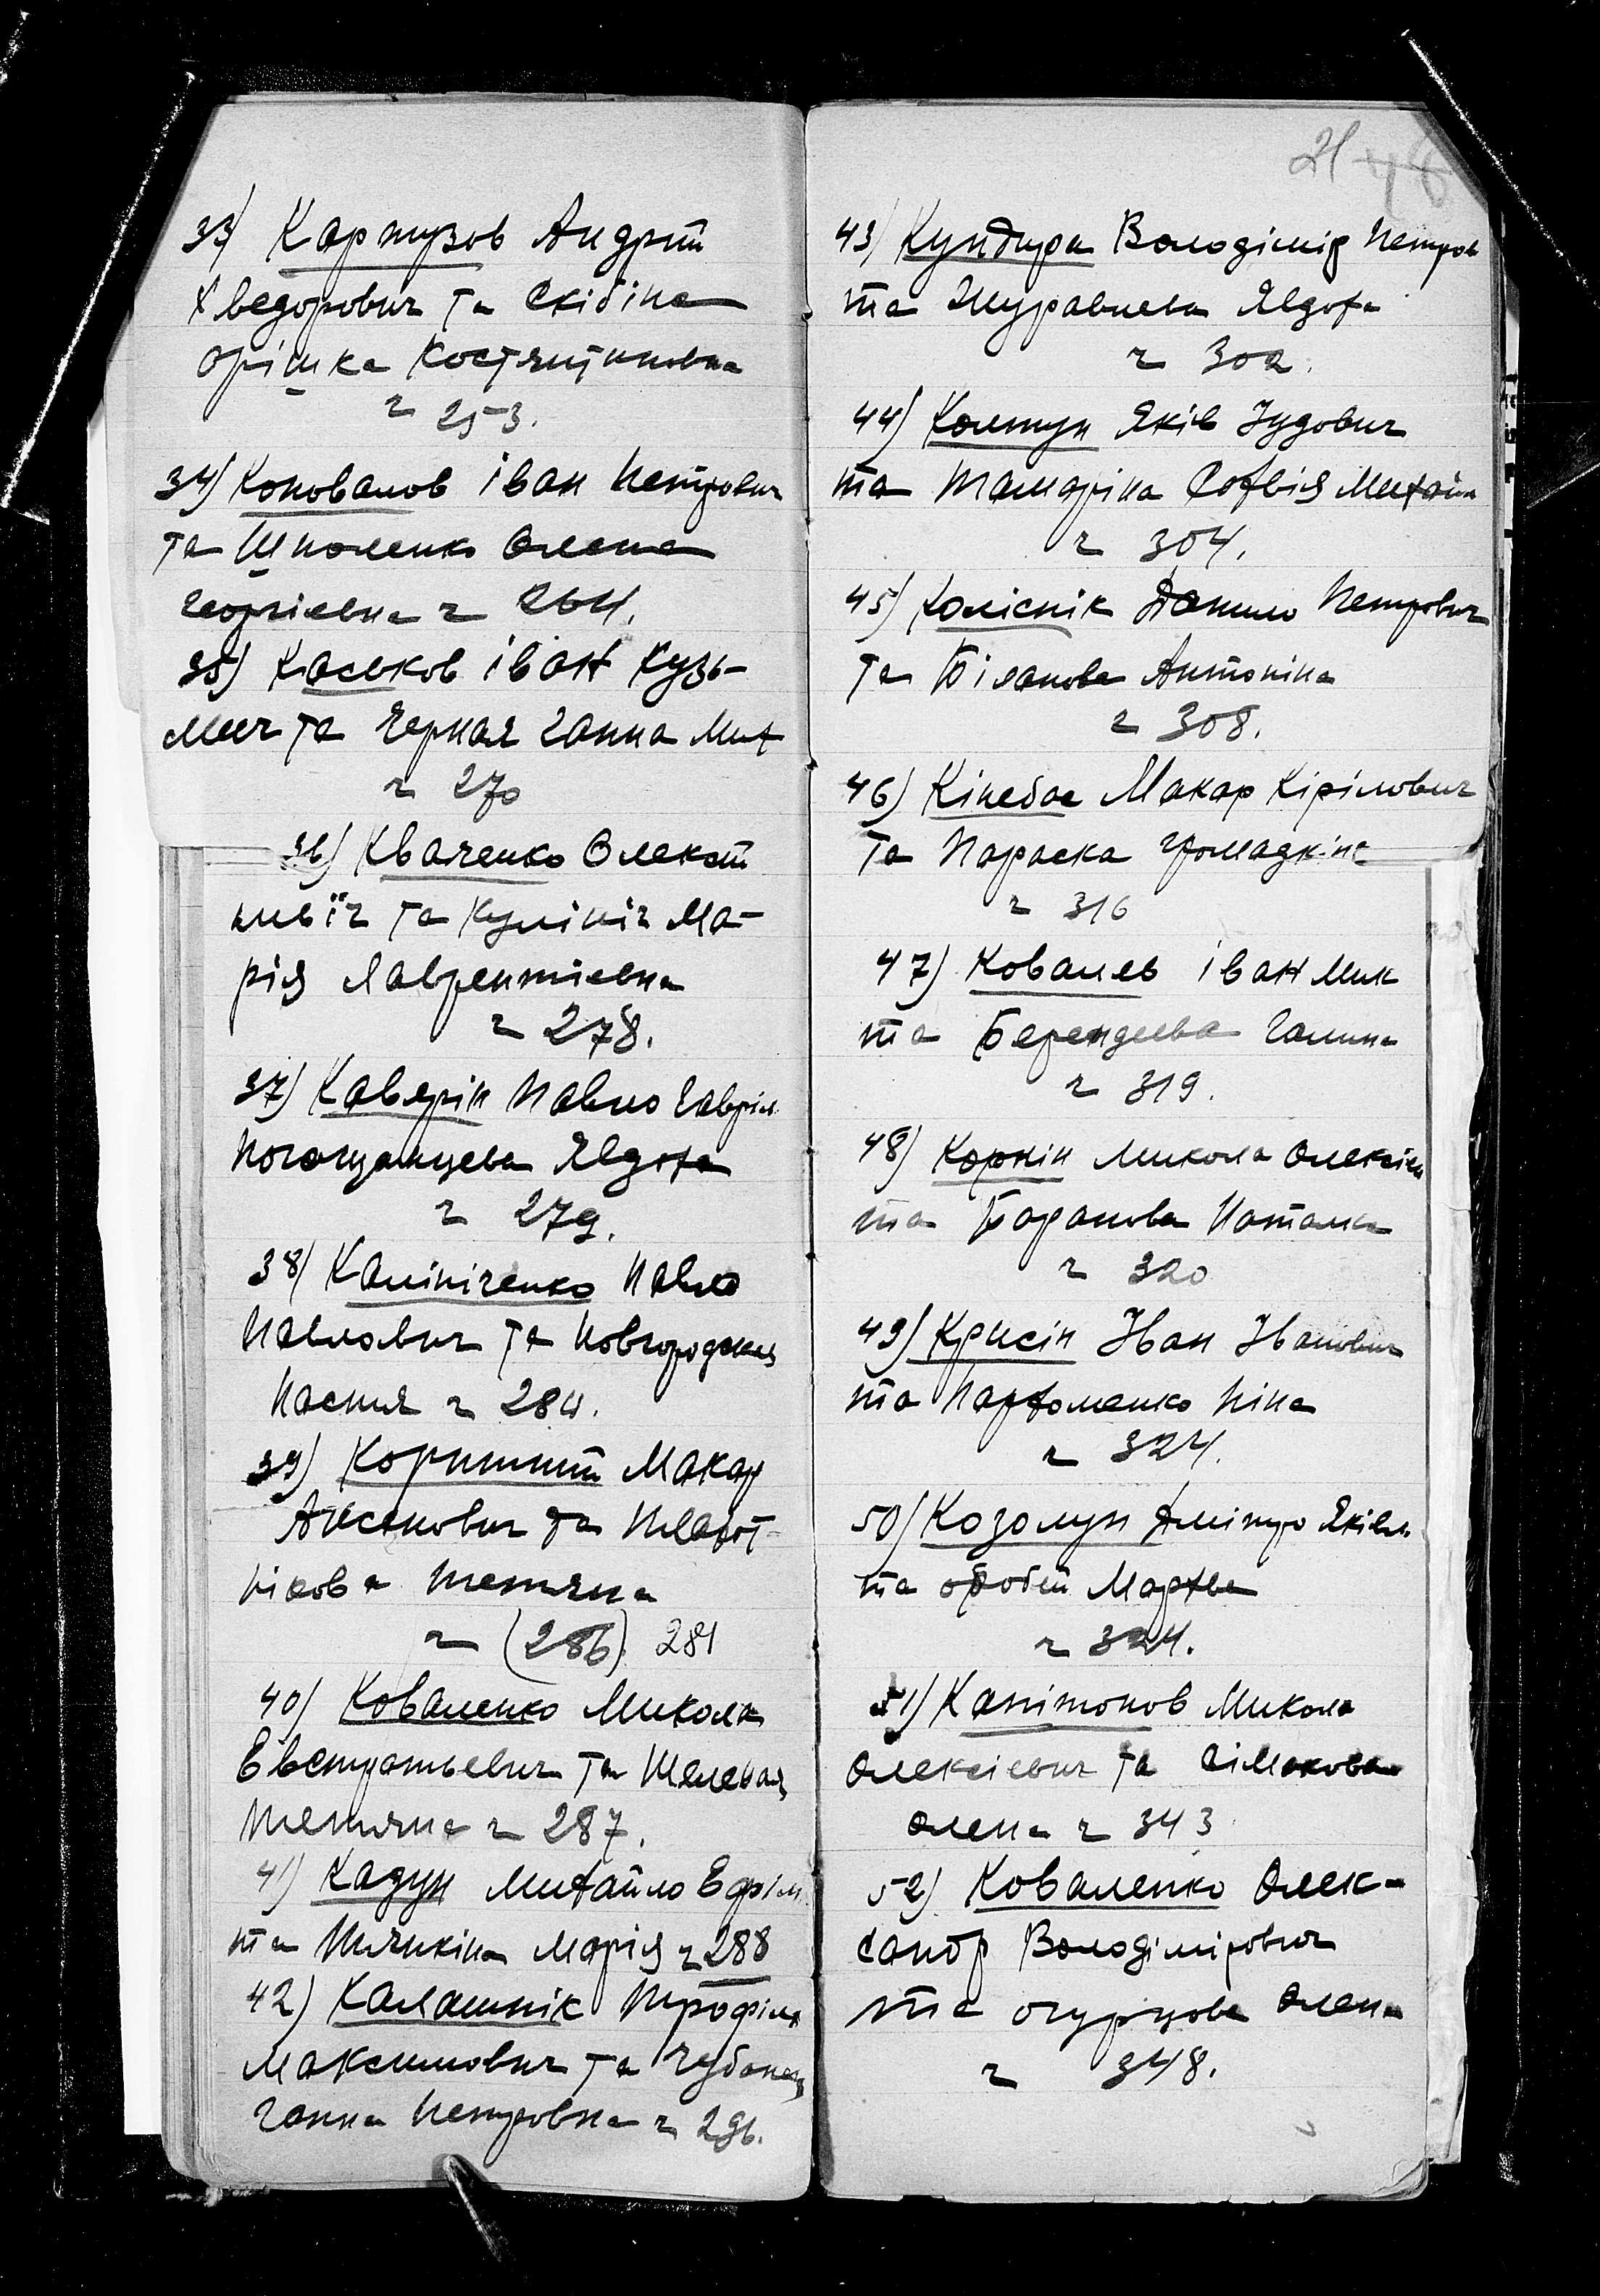 33) Картузов Андрій
Хведорович та Скібіна
Орішка Костянтиновна
ч 253.
34) Коновалов Іван Петрович
та Шполенко Олена
Георгіевна ч 264.
35) Каськов Іван Кузь-
мич та Черная Ганна Мих
ч 270
36) Кваченко Олексій
та Кулініч Ма-
рія Лаврентіевна
ч 278.
37) Каверін Павло Гавріл
Явдоха
ч 279.
38) Калініченко Павло
Павлович та Новгородская
Настя ч 284.
39) Коритний Макар
та
Тетяна
ч (286). 281
40) Коваленко Микола
Евстратьевич та Шелевая
Тетяна ч 287.
41) Кадун Михайло Ефрім
та Марія ч 288
42) Калашнік Трофім
Максимович та
Ганна Петровна ч 296.
21 48
43) Кундира Володімір Петров
та Журавлева Явдоха
ч 302.
44) Колтун Яків Іудович
та Тамаріна Софвія Михайл
ч 304.
45) Колісник Данило Петрович
та Біланова Антоніна
ч 308.
46) Кінебас Макар Кірілович
та Параска Громадкіна
ч 316
47) Ковалев Іван Мик
та Берендеева Галина
ч 319.
48) Корнін Микола Олексієв
та Баранова Наталка
ч 320
49) Крисін Іван Іванович
та Пархоменко Ніна
ч 324.
50) Козолуп Дмітро Яківл
та Мархва
ч 324.
51) Капітонов Микола
Олексіевич та Сімакова
Олена ч 343
52) Коваленко Олек-
сандр Володімірович
та Огурцова Олена
ч 348.